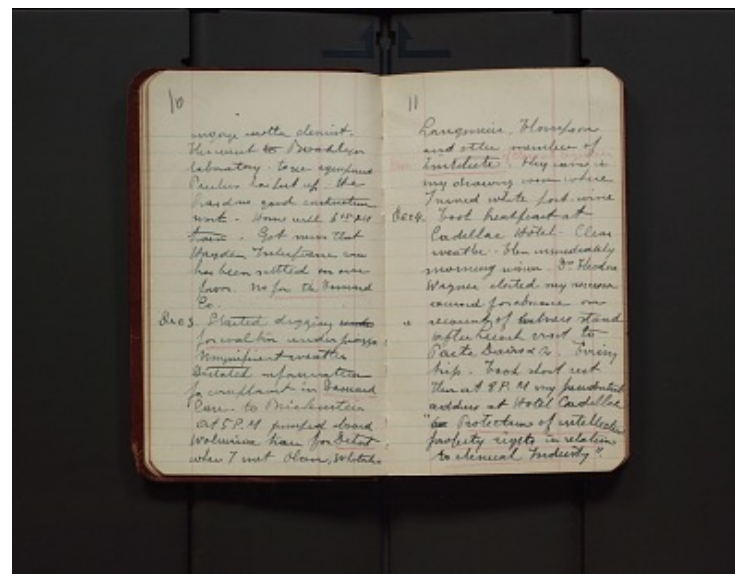 10
engage another chemist.
Then went to Brooklyn
laboratory to see equipment
Paulus has put up. He
has done good construction
work. Home with 6
train. Got news that
Hayden Interference case
has been settled in our
favor. No for the Damard
Co.
Dec 3. Started digging
for vault under piazza
Magnificent weather
Dictated information
for complaint in Damard
Case to
At 5 P.M jumped aboard
Wolverine train for Detroit
when I met Olson, Whitaker
11
Thompson
and other members of
Institute. They came in
my drawing room where
I mixed white port wine
Dec 4. Took breakfast at
Cadillac Hotel. Clear
weather. Then immediately
morning Dr Theodore
Wagner elected my
council for absence on
" account of
after usual visit to
Parke Davis & Co. Tiring
trip. Took short rest
then at 8 P.M my presidential
address at Hotel Cadillac
"on Protection of intellectual
property rights in relation
to chemical Industry".